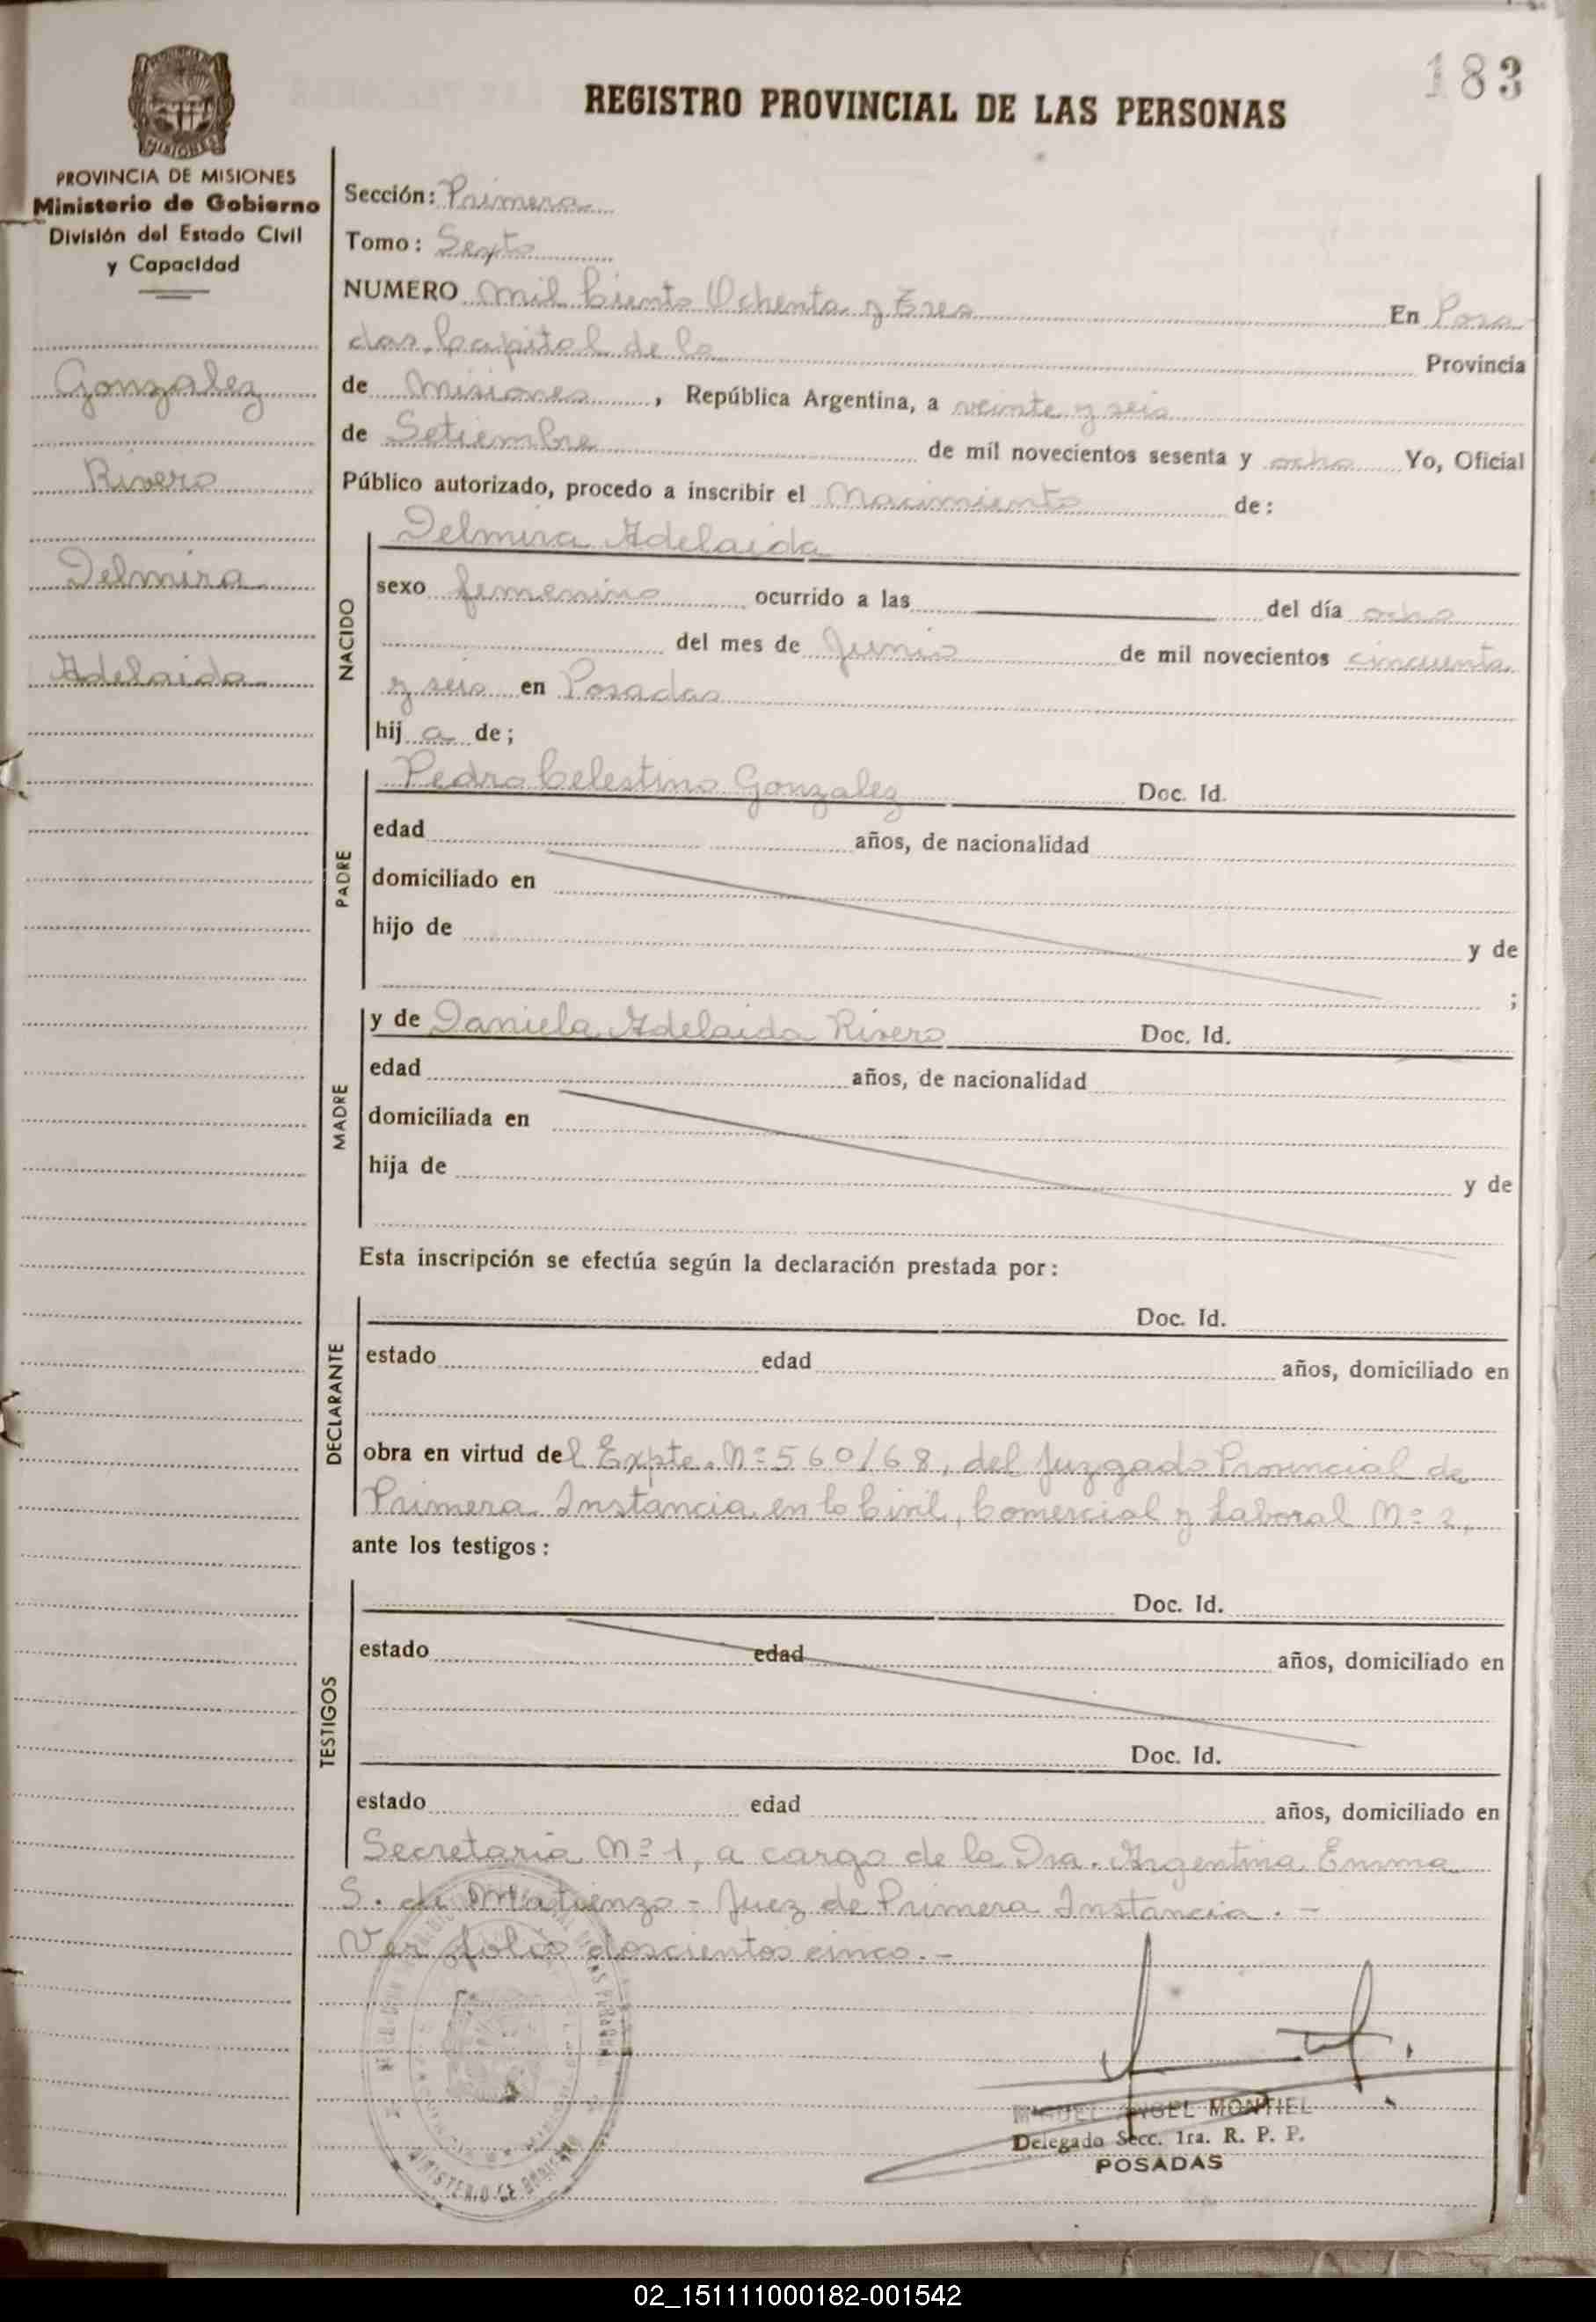 183
REGISTRO PROVINCIAL DE LAS PERSONAS
MISIONES
PROVINCIA DE MISIONES
Ministerio de Gobierno
División del Estado Civil
y Capacidad
Gonzalez
Rivero
Delmira
Adelaida
Sección: Primera
Tomo: Sexto
NUMERO Mil Ciento Ochenta y Tres En Posa
das, Capital de la Provincia
de Misiones, República Argentina, a veinte y seis
de Setiembre de mil novecientos sesenta y ocho Yo, Oficial
Público autorizado, procedo a inscribir el Nacimiento de:
NACIDO
Delmira Adelaida
sexo femenino ocurrido a las del día ocho
del mes de Junio de mil novecientos cincuenta
y seis en Posadas
hij a de;
PADRE
Pedro Celestino Gonzalez Doc. Id.
edad años, de nacionalidad
domiciliado en
hijo de y de
;
MADRE
y de Daniela Adelaida Rivero Doc. Id.
edad años, de nacionalidad
domiciliada en
hija de y de
Esta inscripción se efectúa según la declaración prestada por:
DECLARANTE
Doc. Id.
estado edad años, domiciliado en
obra en virtud del Expte. Nº 560/68, del Juzgado Provincial de
Primera Instancia en lo Civil, Comercial y Laboral Nº 2,
ante los testigos:
TESTIGOS
Doc. Id.
estado edad años, domiciliado en
Doc. Id.
estado edad años, domiciliado en
Secretaria Nº 1, a cargo de la Dra. Argentina Emma
S. de Matienzo - Juez de Primera Instancia. -
Ver folio doscientos cinco. -
MINISTERIO DE GOBIERNO
MIGUEL ANGEL MONTIEL
Delegado Secc. 1ra. R. P. P.
POSADAS
02_151111000182-001542